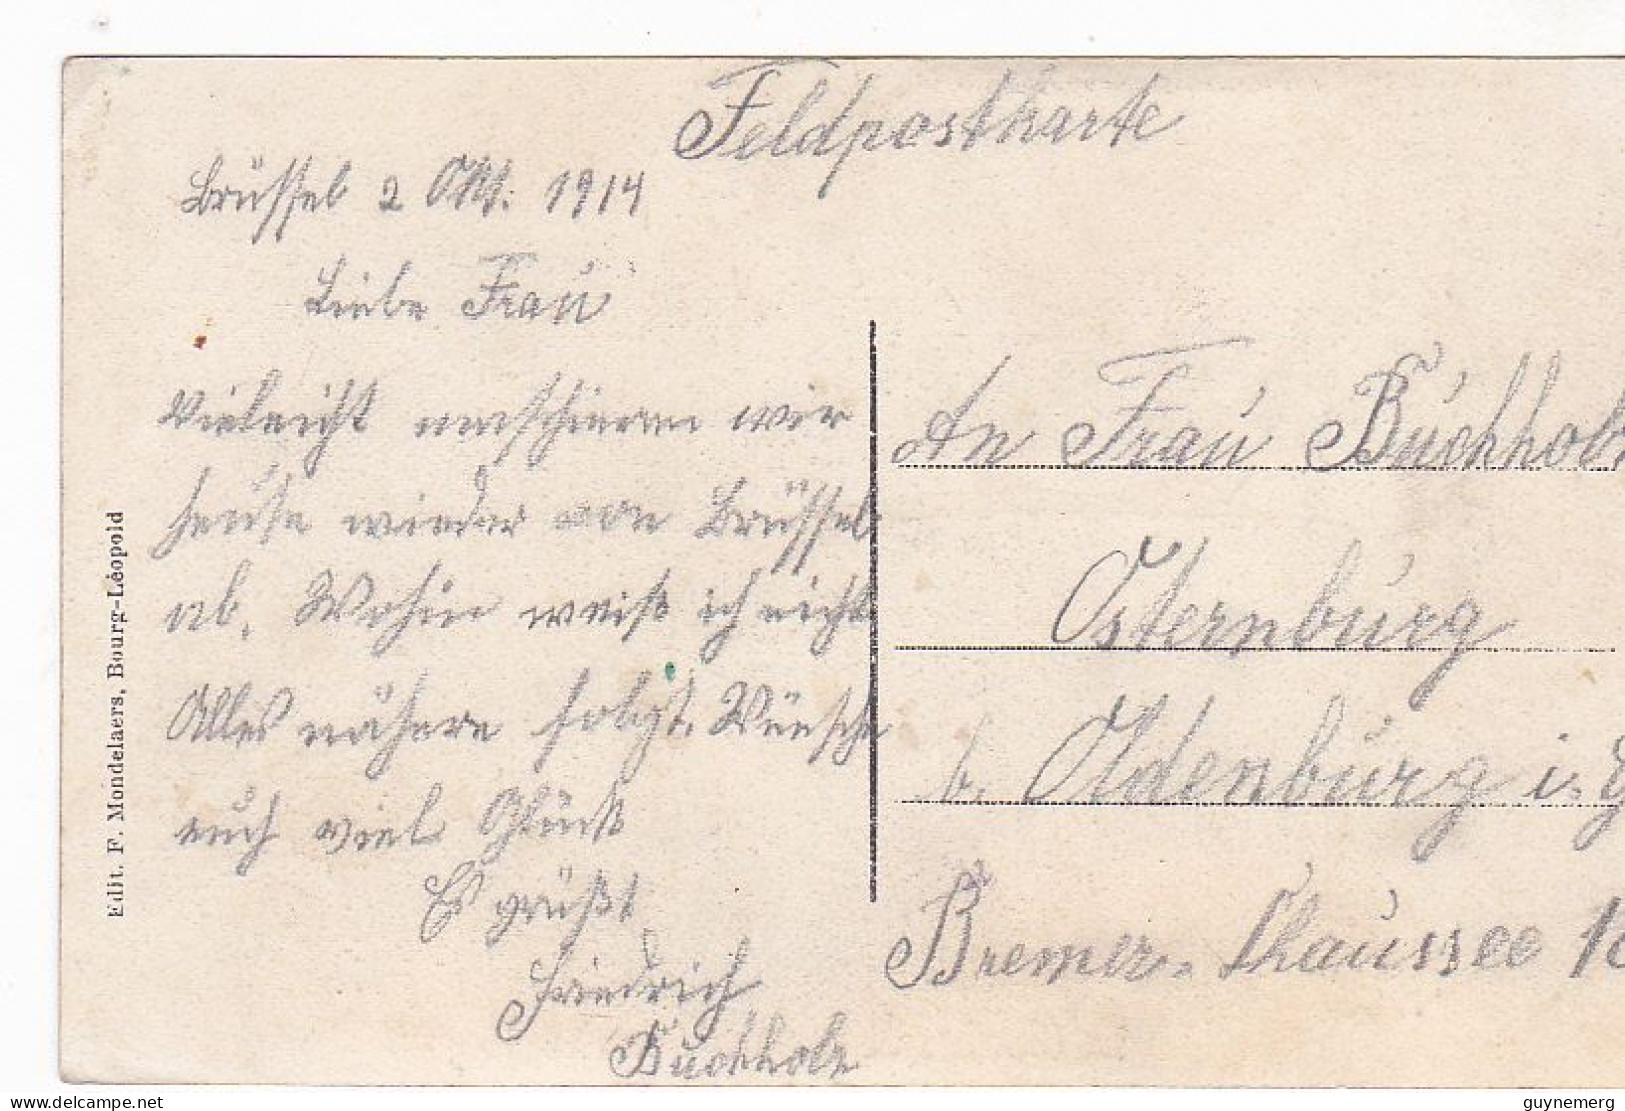 Feldpostkarte
Brüssel 2 Okt. 1914
Liebe Frau
Vieleicht marschieren wir
heute wieder von Brüssel
ab. Wohin weiß ich nicht
Alles nähere folgt. Wünsche
euch viel Glück
Es grüßt
Friedrich
Buchholz
An Frau Buchholz
Osternburg
b. Oldenburg i. G
Bremer Chaussee 1
Edit. F. Mondelaers, Bourg-Léopold
delcampe.net
guynemerg